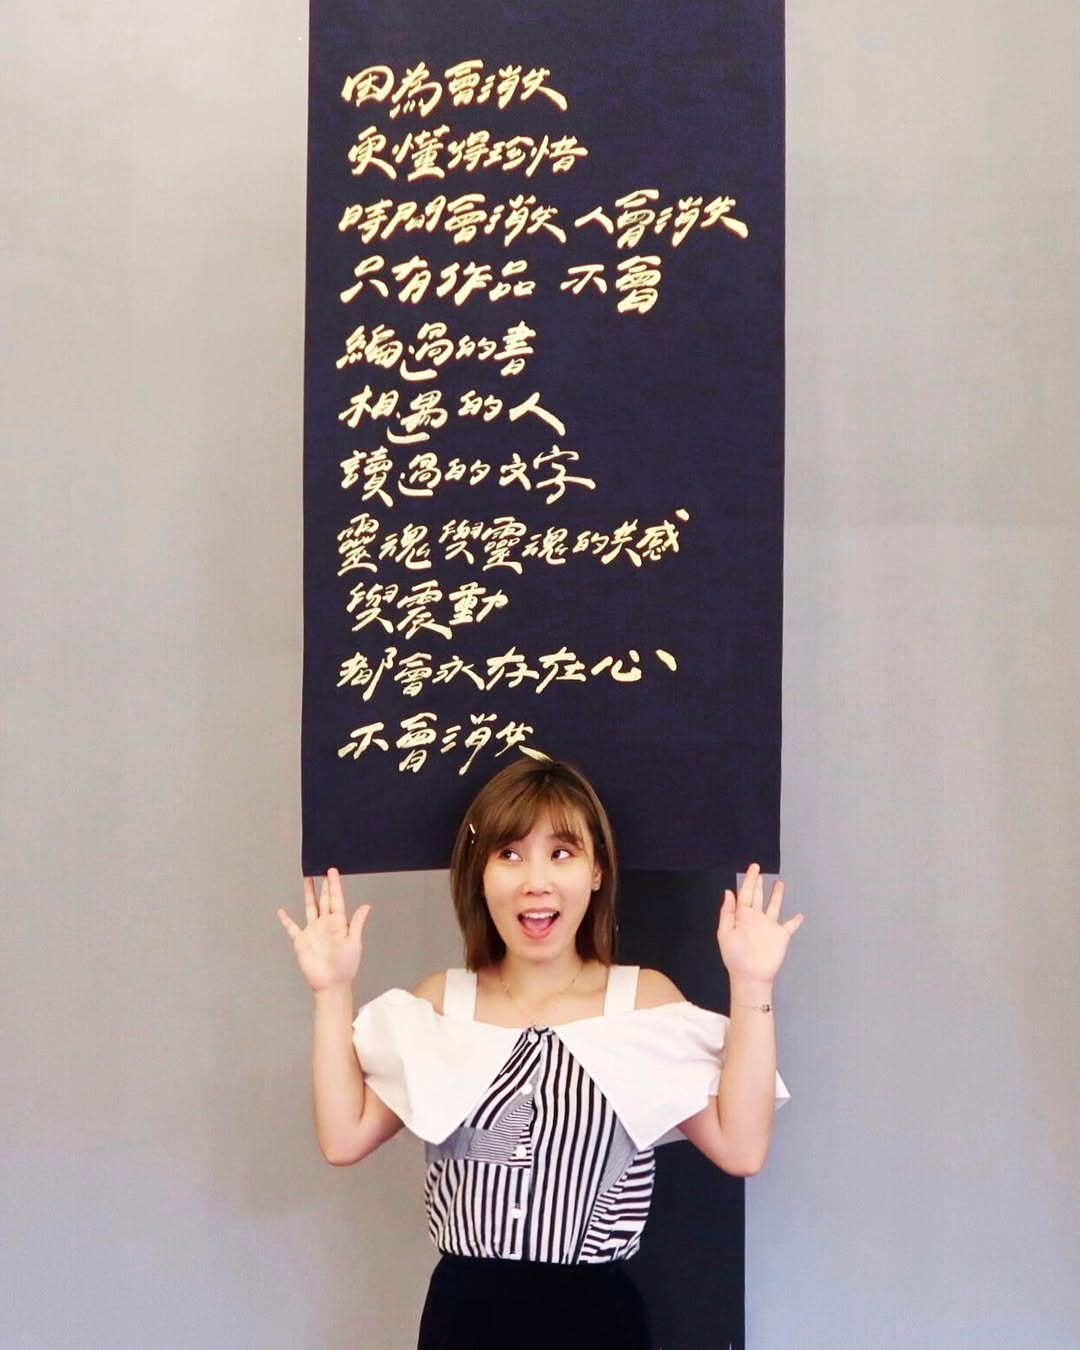 因為會消失
更懂得珍惜
時間會消失 人會消失
只有作品 不會
編過的書
相遇的人
讀過的文字
靈魂與靈魂的共感
與震動
都會永存在心
不會消失